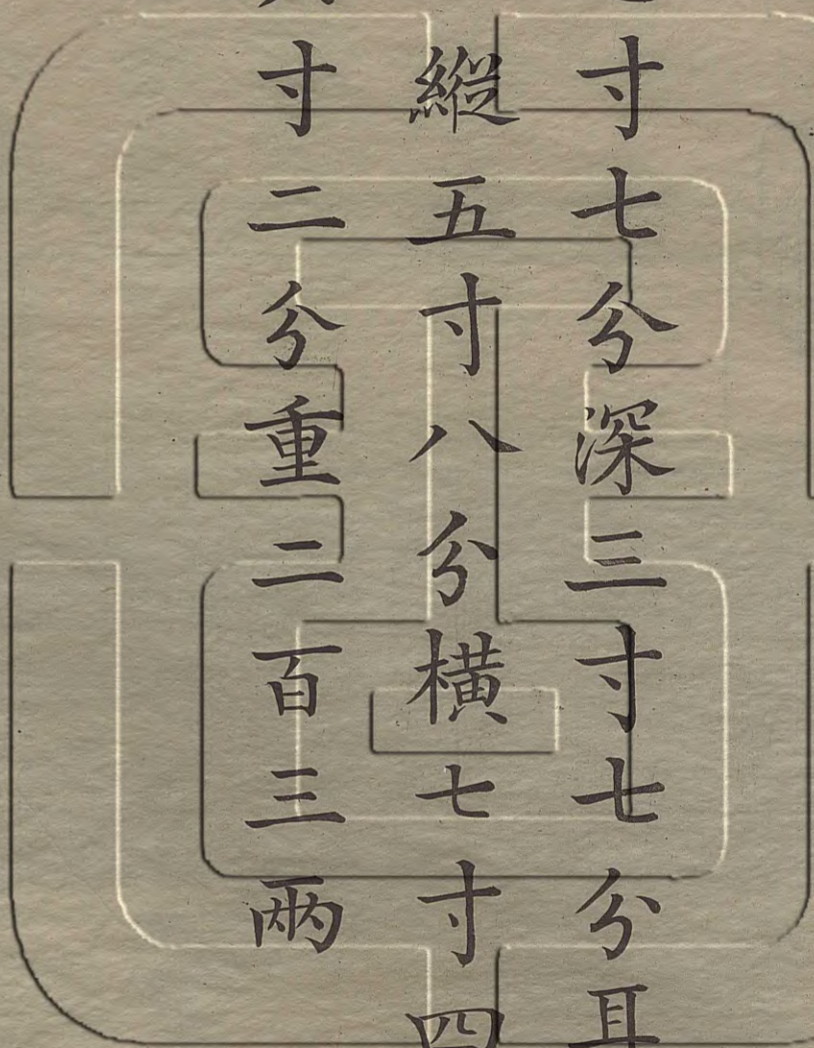 寸七分深三寸七分耳
縱五寸八分橫七寸四
寸二分重二百三兩